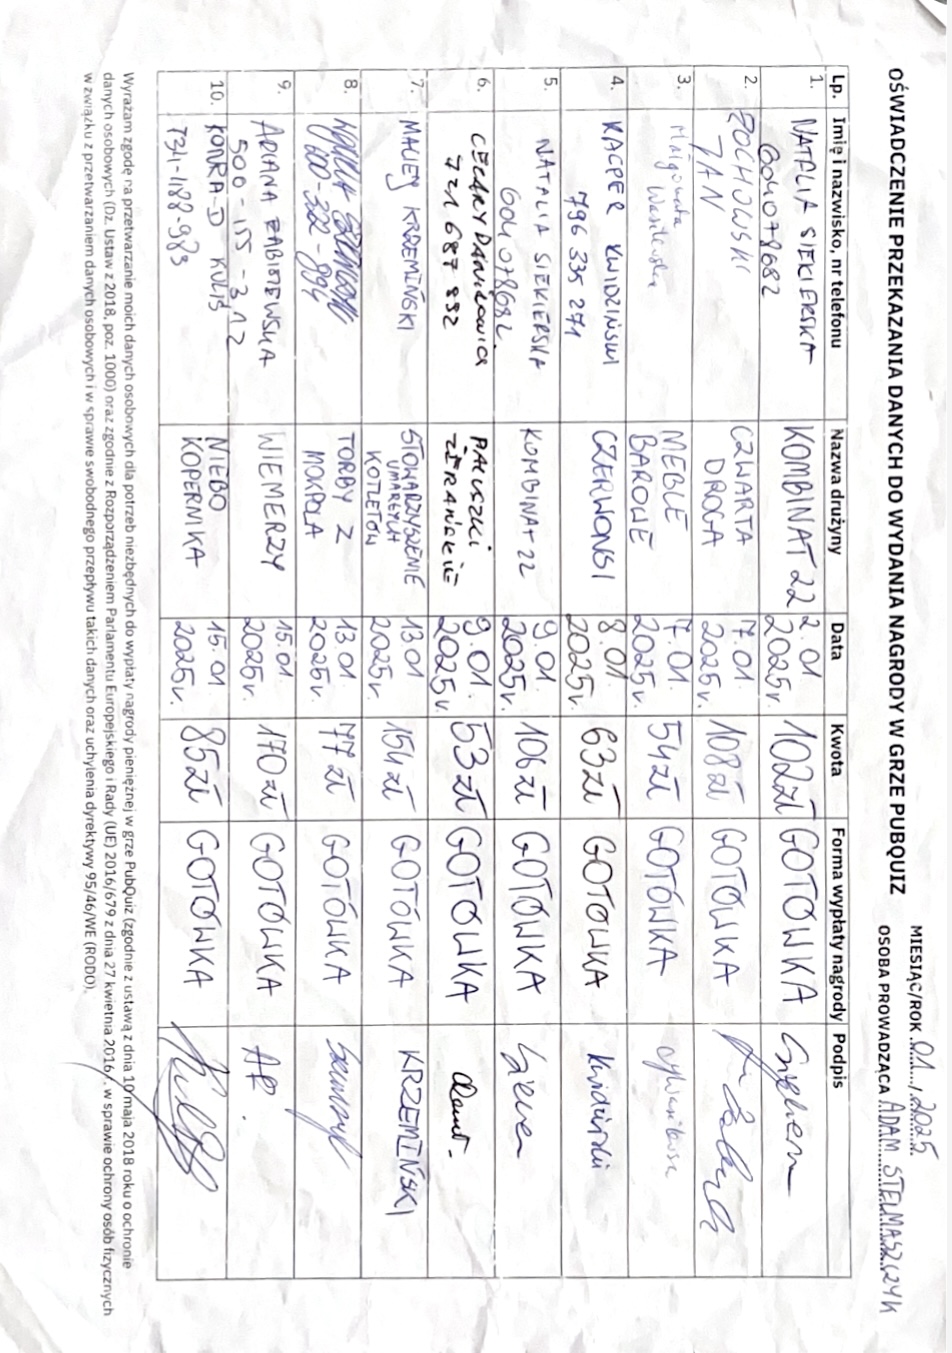 OŚWIADCZENIE PRZEKAZANIA DANYCH DO WYDANIA NAGRODY W GRZE PUBQUIZ
MIESIĄC/ROK 01/2025
OSOBA PROWADZĄCA ADAM STELMASZCZYK
Lp. Imię i nazwisko, nr telefonu Nazwa drużyny Data Kwota Forma wypłaty nagrody Podpis
1. NATALIA SIEKIERSKA KOMBINAT 22 2.01. 102zł GOTÓWKA
604078682 2025r.
2. ŻOCHOWSKI CZWARTA 7.01. 108zł GOTÓWKA
JAN DROGA 2025r.
3. Małgorzata MEBLE 7.01. 54zł GOTÓWKA
BAROWE 2025r.
4. KACPER KWIDZIŃSKI CZERWONSI 8.01. 63zł GOTÓWKA Kwidziński
796 335 271 2025r.
5. NATALIA SIEKIERSKA KOMBINAT 22 9.01. 106zł GOTÓWKA
604 078682 2025r.
6. CEZARY DANILOWICZ PALUSZKI 9.01. 53zł GOTÓWKA
721 687 892 ŻERAŃSKIE 2025r.
7. MACIEJ KRZEMIŃSKI STOWARZYSZENIE 13.01 154zł GOTÓWKA KRZEMIŃSKI
UMARŁYCH
KOTLETÓW 2025r.
8. TORBY Z 13.01. 77zł GOTÓWKA
MOKPOLA 2025r.
9. ADIANA WIEMERZY 15.01. 170zł GOTÓWKA AP.
500-155-312 2025r.
10. KONRAD KULIS NIEBO 15.01. 85zł GOTÓWKA
731-188-983 KOPERNIKA 2025r.
Wyrażam zgodę na przetwarzanie moich danych osobowych dla potrzeb niezbędnych do wypłaty nagrody pieniężnej w grze PubQuiz (zgodnie z ustawą z dnia 10 maja 2018 roku o ochronie
danych osobowych (Dz. Ustaw z 2018, poz. 1000) oraz zgodnie z Rozporządzeniem Parlamentu Europejskiego i Rady (UE) 2016/679 z dnia 27 kwietnia 2016 r. w sprawie ochrony osób fizycznych
w związku z przetwarzaniem danych osobowych i w sprawie swobodnego przepływu takich danych oraz uchylenia dyrektywy 95/46/WE (RODO).